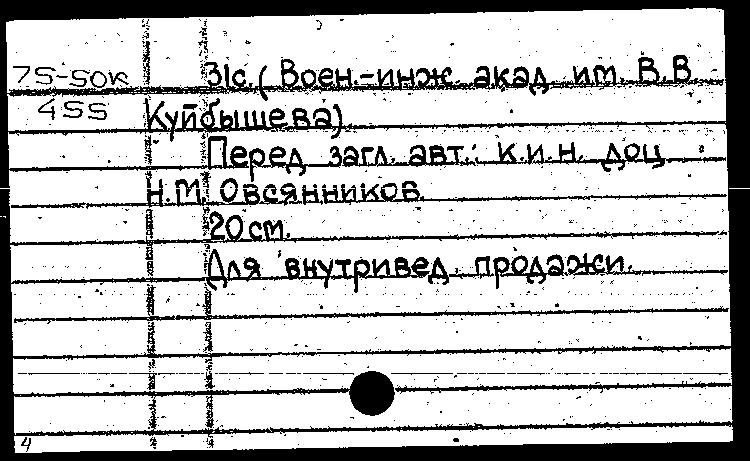 75-50к 31с. (Воен.-инж. акад. им. В.В.
455 Куйбышева)
Перед загл. авт.: к.и.н. доц.
Н.М. Овсянников.
20 см.
Для внутривед. продажи.
4